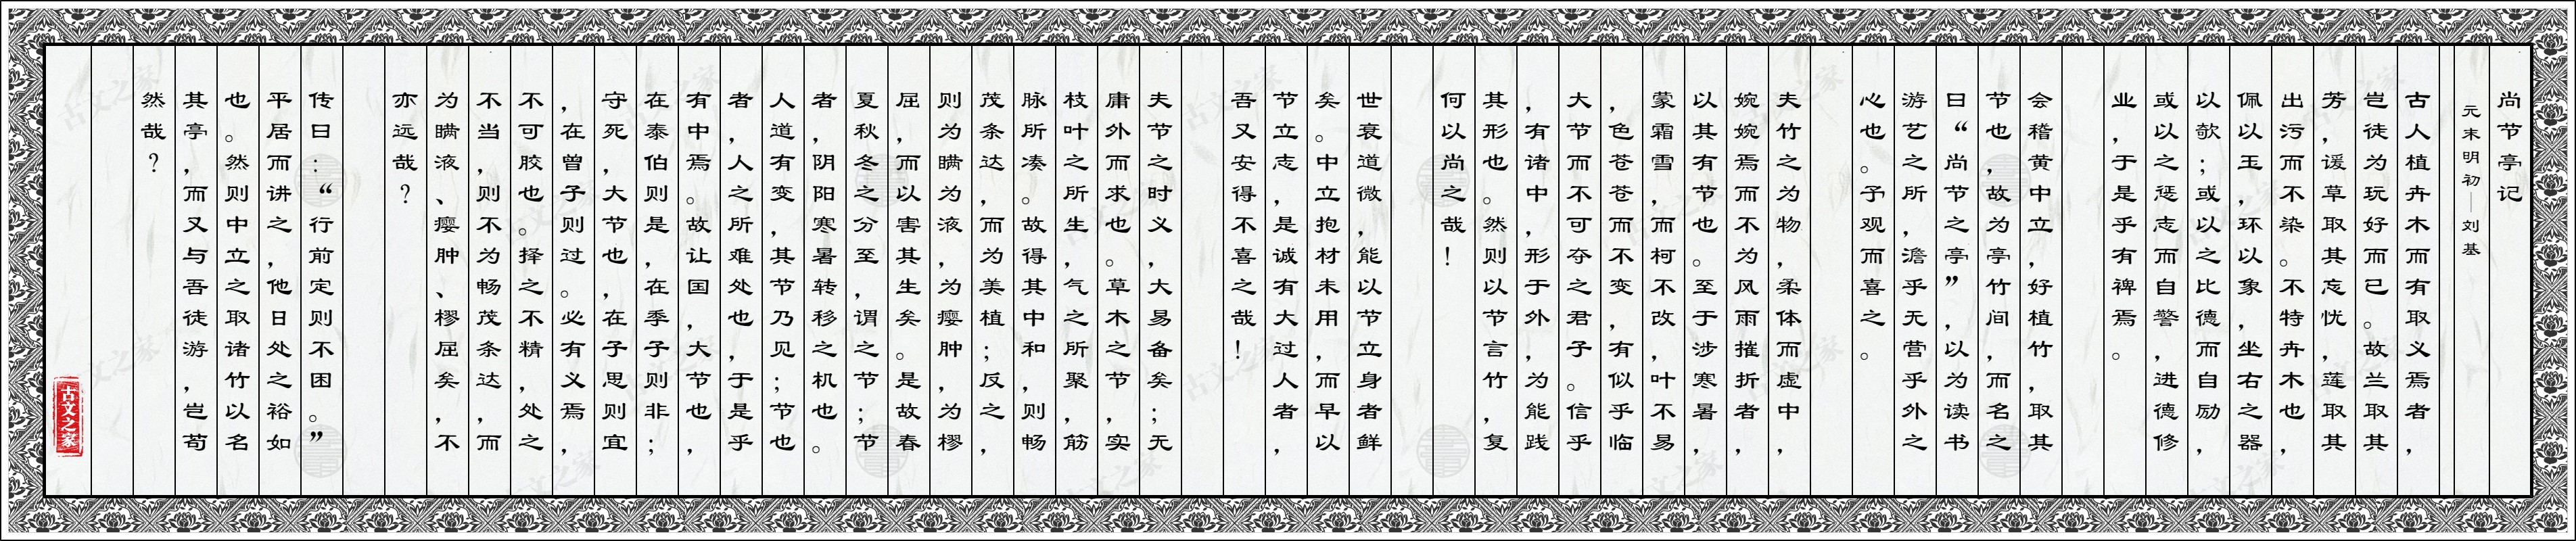 尚节亭记
元末明初——刘基
古人植卉木而有取义焉者，
岂徒为玩好而已。故兰取其
芳，谖草取其忘忧，莲取其
出污而不染。不特卉木也，
佩以玉，环以象，坐右之器
以欹；或以之比德而自励，
或以之惩志而自警，进德修
业，于是乎有裨焉。
会稽黄中立，好植竹，取其
节也，故为亭竹间，而名之
曰“尚节之亭”，以为读书
游艺之所，澹乎无营乎外之
心也。予观而喜之。
夫竹之为物，柔体而虚中，
婉婉焉而不为风雨摧折者，
以其有节也。至于涉寒暑，
蒙霜雪，而柯不改，叶不易
，色苍苍而不变，有似乎临
大节而不可夺之君子。信乎
，有诸中，形于外，为能践
其形也。然则以节言竹，复
何以尚之哉！
世衰道微，能以节立身者鲜
矣。中立抱材未用，而早以
节立志，是诚有大过人者，
吾又安得不喜之哉！
夫节之时义，大易备矣；无
庸外而求也。草木之节，实
枝叶之所生，气之所聚，筋
脉所凑。故得其中和，则畅
茂条达，而为美植；反之，
则为瞒为液，为瘿肿，为樛
屈，而以害其生矣。是故春
夏秋冬之分至，谓之节；节
者，阴阳寒暑转移之机也。
人道有变，其节乃见；节也
者，人之所难处也，于是乎
有中焉。故让国，大节也，
在泰伯则是，在季子则非；
守死，大节也，在子思则宜
，在曾子则过。必有义焉，
不可胶也。择之不精，处之
不当，则不为畅茂条达，而
为瞒液、瘿肿、樛屈矣，不
亦远哉？
传曰：“行前定则不困。”
平居而讲之，他日处之裕如
也。然则中立之取诸竹以名
其亭，而又与吾徒游，岂苟
然哉？
古文之家